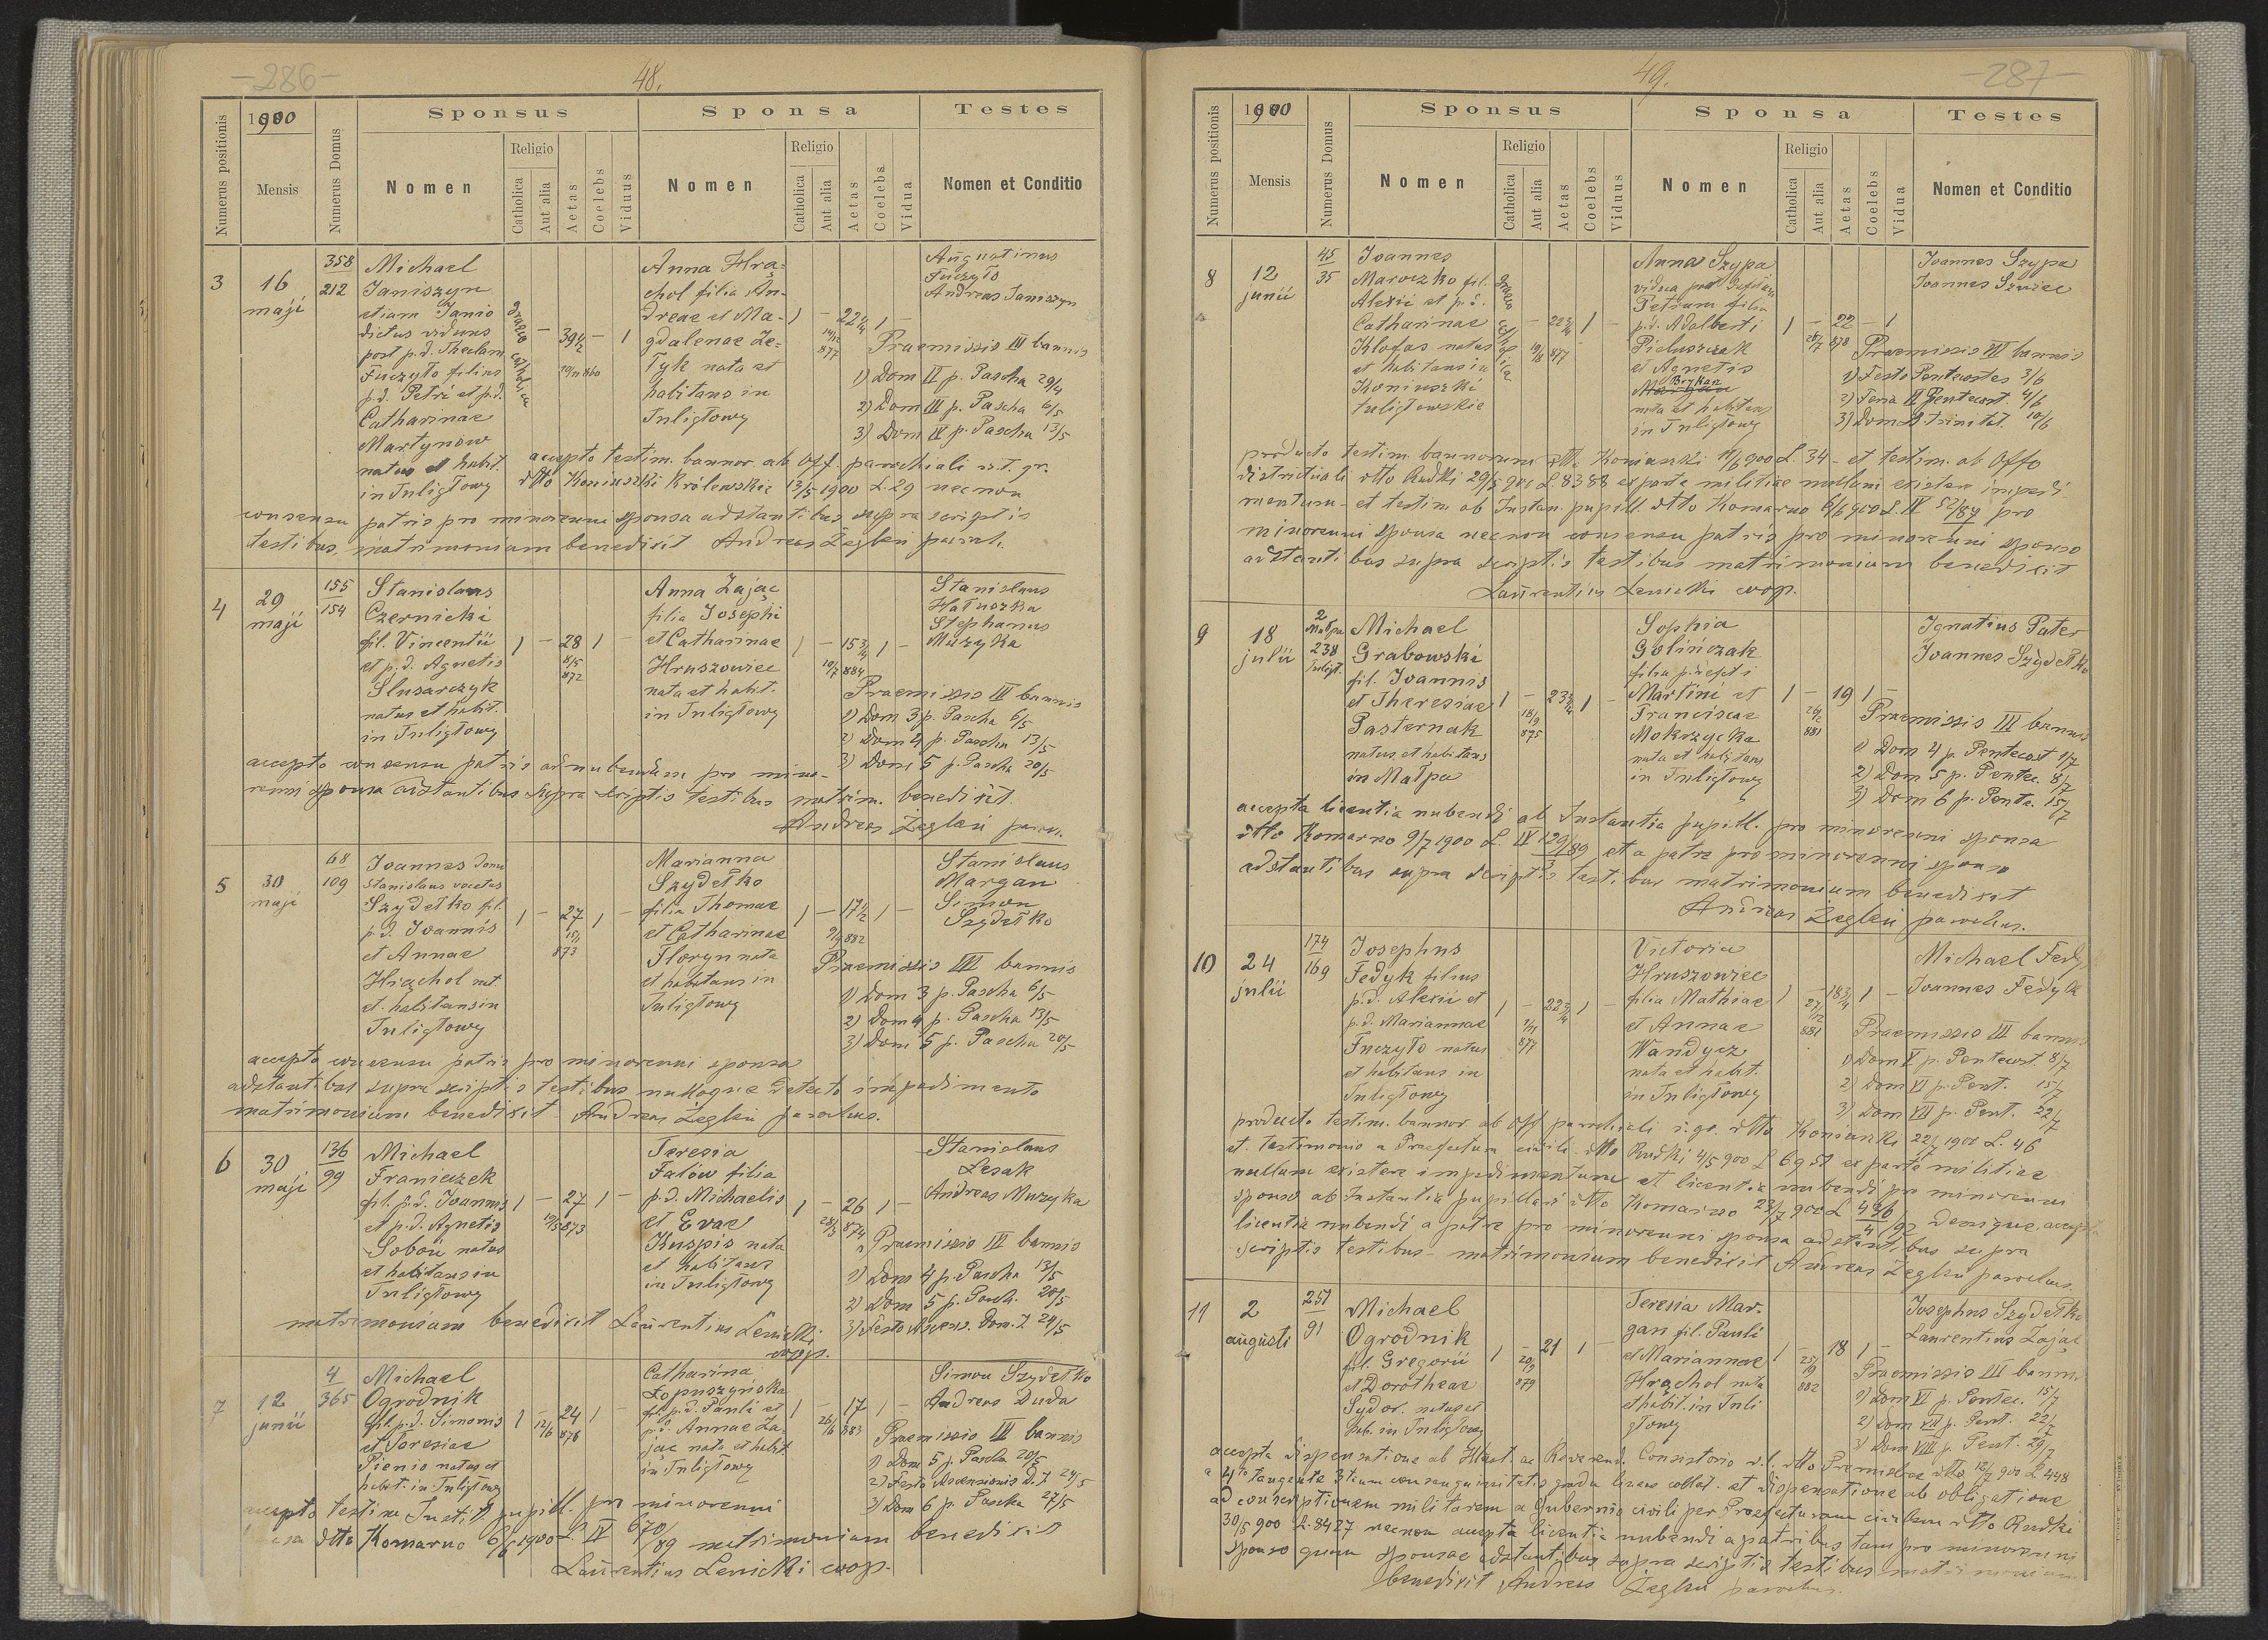 -286-
48.
Numerus positionis
1900
Mensis
Numerus Domus
Sponsus
Nomen
Religio
Catholica
Aut alia
Aetas
Coelebs
Viduus
Sponsa
Nomen
Religio
Catholica
Aut alia
Aetas
Coelebs
Vidua
Testes
Nomen et Conditio
3
16
maji
358
212
Michael
Janiszyn
etiam Janio
dictus viduus
post p.d. Theclam
Fuczyło filius
p.d. Petri et p.d.
Catharinae
Martynów
natus et habit.
in Tuligłowy
graeco catholica
— 39½ — 1
19/11 860
Anna Hrą=
chol filia An-
dreae et Ma-
gdalenae Le=
Tyk nata et
habitans in
Tuligłowy
1 — 22¼ 1 —
877
Augustinus
Fuczyło
Andreas Janiszyn
Praemissis III bannis
1) Dom II p. Pascha 29/4
2) Dom III p. Pascha 6/5
3) Dom IV p. Pascha 13/5
accepto testim. bannor. ab Off. parochiali r. gr.
dtto Koniuszki Królewskie 13/5 1900 L. 29 necnon
consensu patris pro minorenni sponsa adstantibus supra scriptis
testibus, matrimonium benedixit Andreas Żegleń paroch.
4
29
maji
155
154
Stanislaus
Czernicki
fil. Vincentii
et p.d. Agnetis
Slusarczyk
natus et habit.
in Tuligłowy
1 — 28 1 —
8/5
872
Anna Zając
filia Josephi
et Catharinae
Hruszowiec
nata et habit.
in Tuligłowy
1 — 15¾ 1 —
10/7 884
Stanislaus
Hałuszka
Stephanus
Muzyka
Praemissis III bannis
1) Dom 3 p. Pascha 6/5
2) Dom 4 p. Pascha 13/5
3) Dom 5 p. Pascha 20/5
accepto consensu patris ad nubendum pro mino-
renni sponsa adstantibus supra scriptis testibus matrim. benedixit
Andreas Żegleń paroch.
5
30
maji
68
109
Joannes Domi
Stanislaus vocatus
Szydełko fil.
p.d. Joannis
et Annae
Hrąchol nat.
et habitans in
Tuligłowy
1 — 27 1 —
15/1
873
Marianna
Szydełko
filia Thomae
et Catharinae
Floryn nata
et habitans in
Tuligłowy
1 — 17½ 1 —
882
Stanislaus
Margan
Simon
Szydełko
Praemissis III bannis
1) Dom 3 p. Pascha 6/5
2) Dom 4 p. Pascha 13/5
3) Dom 5 p. Pascha 20/5
accepto consensu patris pro minorenni sponsa
adstantibus supra scriptis testibus nulloque detecto impedimento
matrimonium benedixit Andreas Żegleń parochus.
6
30
maji
136
99
Michael
Franiczek
fil. p.d. Joannis
et p.d. Agnetis
Soboń natus
et habitans in
Tuligłowy
1 — 27 1 —
19/5 873
Teresia
Falów filia
p.d. Michaelis
et Evae
Kuspis nata
et habitans
in Tuligłowy
1 — 26 1 —
28/3 874
Stanislaus
Lesak
Andreas Muzyka
Praemissis III bannis
1) Dom 4 p. Pascha 13/5
2) Dom 5 p. Pasch. 20/5
3) Festo Ascens. Dom. J. 24/5
matrimonium benedixit Laurentius Lenicki
coop.
7
12
junii
4
365
Michael
Ogrodnik
fil. p.d. Simonis
et Teresiae
Pienio natus et
habit. in Tuligłowy
1 — 24 1 —
12/6 876
Catharina
Łopuszyńska
fil. p.d. Pauli et
p.d. Annae Za-
jąc nata et habit.
in Tuligłowy
1 — 17 1 —
26/6 883
Simon Szydełko
Andreas Duda
Praemissis III bannis
1) Dom 5 p. Pascha 20/5
2) Festo Ascensionis D. J. 24/5
3) Dom 6 p. Pascha 27/5
accepto testim. Instit. pupill. pro minorenni
dtto Komarno 6/6 1900 L. IV 670/89 matrimonium benedixit
Laurentius Lenicki coop.
49.
-287-
Numerus positionis
1900
Mensis
Numerus Domus
Sponsus
Nomen
Religio
Catholica
Aut alia
Aetas
Coelebs
Viduus
Sponsa
Nomen
Religio
Catholica
Aut alia
Aetas
Coelebs
Vidua
Testes
Nomen et Conditio
8
12
junii
45
35
Joannes
Maroczko fil.
Alexii et p.d.
Catharinae
Klofas natus
et habitans in
Koniuszki
tuligłowskie
graeco catholica
— 22¾ 1 —
19/8 877
Anna Szypa
vidua post defunctum
Petrum filia
p.d. Adalberti
Pieluszczak
et Agnetis
Brykan
nata et habitans
in Tuligłowy
1 — 22 — 1
28/7 878
Joannes Szypa
Joannes Szwiec
Praemissis III bannis
1) Festo Pentecostes 3/6
2) Feria II Pentecost. 4/6
3) Dom SS Trinitat. 10/6
producto testim. bannorum dtto Koniuszki 11/6 900 L. 34 et testim. ab Offo
districtuali dtto Rudki 29/5 900 L 8388 ex parte militiae nullum existere impedi-
mentum et testim. ab Instan. pupill. dtto Komarno 6/6 900 L. IV 52/89 pro
minorenni sponsa necnon consensu patris pro minorenni sponso
adstantibus supra scriptis testibus matrimonium benedixit
Laurentius Lenicki coop.
9
18
julii
2
Małpa
238
Tuligł.
Michael
Grabowski
fil. Joannis
et Theresiae
Pasternak
natus et habitans
in Małpa
1 — 23¾ 1 —
18/9
875
Sophia
Golińczak
filia p. defti
Martini et
Franciscae
Mokrzycka
nata et habitans
in Tuligłowy
1 — 19 1 —
881
Ignatius Pater
Joannes Szydełko
Praemissis III bannis
1) Dom 4 p. Pentecost 1/7
2) Dom 5 p. Pentec. 8/7
3) Dom 6 p. Pente. 15/7
accepta licentia nubendi ab Instantia pupill. pro minorenni sponsa
dtto Komarno 9/7 1900 L. IV 129/89 et a patre pro minorenni sponso
3
adstantibus supra scriptis testibus matrimonium benedixit
Andreas Żegleń parochus.
10
24
julii
174
169
Josephus
Fedyk filius
p.d. Alexii et
p.d. Mariannae
Fuczyło natus
et habitans in
Tuligłowy
1 — 22¾ 1 —
877
Victoria
Hruszowiec
filia Mathiae
et Annae
Wandycz
nata et habit.
in Tuligłowy
1 — 18¾ 1 —
27/12
881
Michael Fedy
Joannes Fedyk
Praemissis III bannis
1) Dom V p. Pentecost. 8/7
2) Dom VI p. Pent. 15/7
3) Dom VII p. Pent. 22/7
producto testim. bannor. ab Off. parochiali r. gr. dtto Koniuszki 22/7 1900 L. 46
et testimonio a Praefectura civili dtto Rudki 4/5 900 L 6951 ex parte militiae
nullum existere impedimentum et licentia nubendi pro minorenni
sponso ab Instantia pupillari dtto Komarno 23/7 900 L 496/92 denique accepta
4
licentia nubendi a patre pro minorenni sponsa adstantibus supra
scriptis testibus matrimonium benedixit Andreas Żegleń parochus.
11
2
augusti
251
91
Michael
Ogrodnik
fil. Gregorii
et Dorotheae
Sydor. natus et
hab. in Tuligłowy
1 — 21 1 —
20/9
879
Teresia Mar-
gan fil. Pauli
et Mariannae
Hrąchol nata
et habit. in Tuli
głowy
1 — 18 1 —
882
Josephus Szydełko
Laurentius Zając
Praemissis III bannis
1) Dom VI p. Pentec. 15/7
2) Dom VII p. Pent. 22/7
3) Dom VIII p. Pent. 29/7
accepta dispensatione ab Illust. ac Reverend. Consistorio r. l. dtto Premisliae dtto 12/7 900 L 448
a 4to tangente 3tium consanguinitatis gradu et dispensatione ab obligatione
ad conscriptionem militarem a Gubernio civili per Praefecturam civilem dtto Rudki
30/5 900 L. 8427 necnon accepta licentia nubendi a patribus tam pro minorenni
sponso quam sponsae adstantibus supra scriptis testibus matrimonium
benedixit Andreas Żegleń parochus.